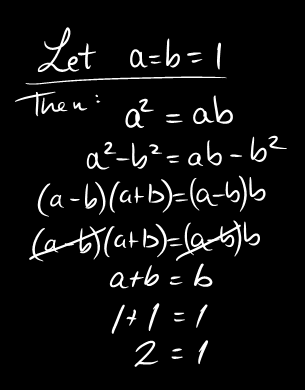 Let a=b=1
Then: a² = ab
a²-b²=ab-b²
(a-b)(a+b)=(a-b)b
(a-b)(a+b)=(a-b)b
a+b = b
1+1 = 1
2 = 1